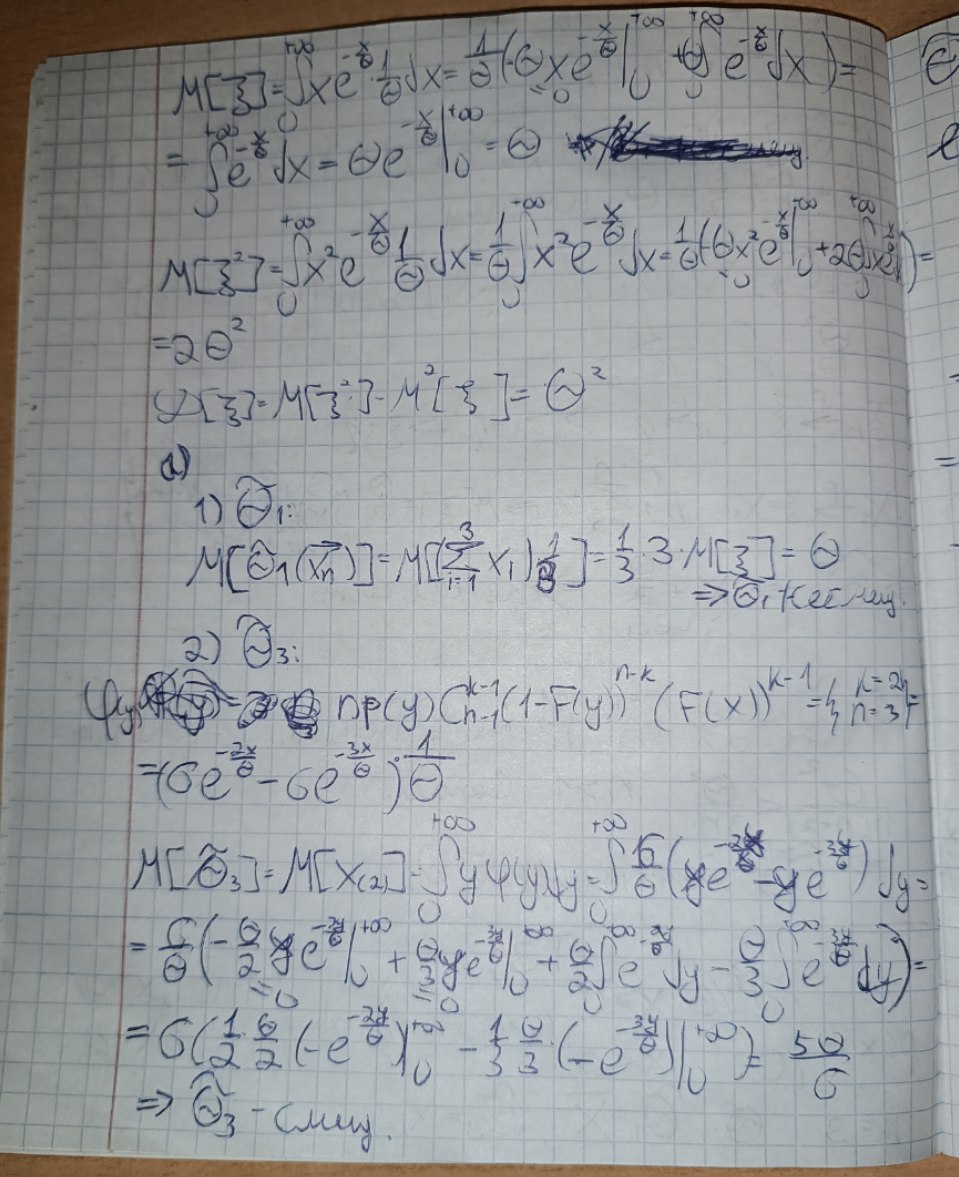 M[ξ] = ∫₀^{+∞} x e^{-x/Θ} · 1/Θ dx = 1/Θ (-Θ x e^{-x/Θ} |₀^{+∞} + Θ ∫₀^{+∞} e^{-x/Θ} dx) =
= ∫₀^{+∞} e^{-x/Θ} dx = Θ e^{-x/Θ} |₀^{+∞} = Θ
M[ξ²] = ∫₀^{+∞} x² e^{-x/Θ} 1/Θ dx = 1/Θ ∫₀^{+∞} x² e^{-x/Θ} dx = 1/Θ (-Θ x² e^{-x/Θ} |₀^{+∞} + 2Θ ∫₀^{+∞} x e^{-x/Θ} dx) =
= 2Θ²
D[ξ] = M[ξ²] - M²[ξ] = Θ²
a)
1) Θ̃₁:
M[Θ̃₁(x⃗ₙ)] = M[(∑_{i=1}^{3} xᵢ) 1/3] = 1/3 · 3 · M[ξ] = Θ
⇒ Θ̃₁ несмещ.
2) Θ̃₃:
φ(y) n p(y) C_{n-1}^{k-1} (1-F(y))^{n-k} (F(x))^{k-1} = { k=2, n=3 } =
= (6e^{-2x/Θ} - 6e^{-3x/Θ}) 1/Θ
M[Θ̃₃] = M[X₍₂₎] = ∫₀^{+∞} y φ(y) dy = ∫₀^{+∞} 6/Θ (y e^{-2y/Θ} - y e^{-3y/Θ}) dy =
= 6/Θ (-Θ/2 y e^{-2y/Θ} |₀^{+∞} + Θ/3 y e^{-3y/Θ} |₀^{∞} + Θ/2 ∫₀^{∞} e^{-2y/Θ} dy - Θ/3 ∫₀^{+∞} e^{-3y/Θ} dy) =
= 6 (1/2 · Θ/2 (-e^{-2y/Θ}) |₀^{+∞} - 1/3 · Θ/3 · (-e^{-3y/Θ}) |₀^{+∞}) = 5Θ/6
⇒ Θ̃₃ - смещ.